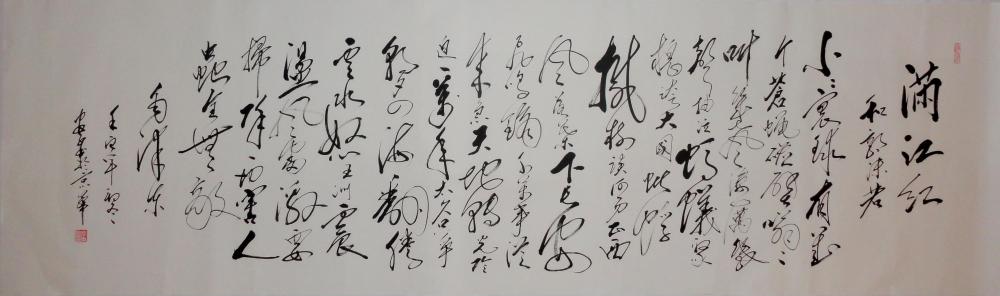 滿江红
和郭沫若
小小寰球有幾
个蒼蝇碰壁嗡嗡
叫幾声凄厉幾
声抽泣螞蟻缘
槐夸大国蚍蜉
撼树谈何易正西
风落葉下长安
飞鸣镝多少事从
来急天地转光阴
迫一萬年太久只争
朝夕四海翻腾
云水怒五洲震
盪风雷激要
掃除一切害人
蟲全無敵
毛泽东